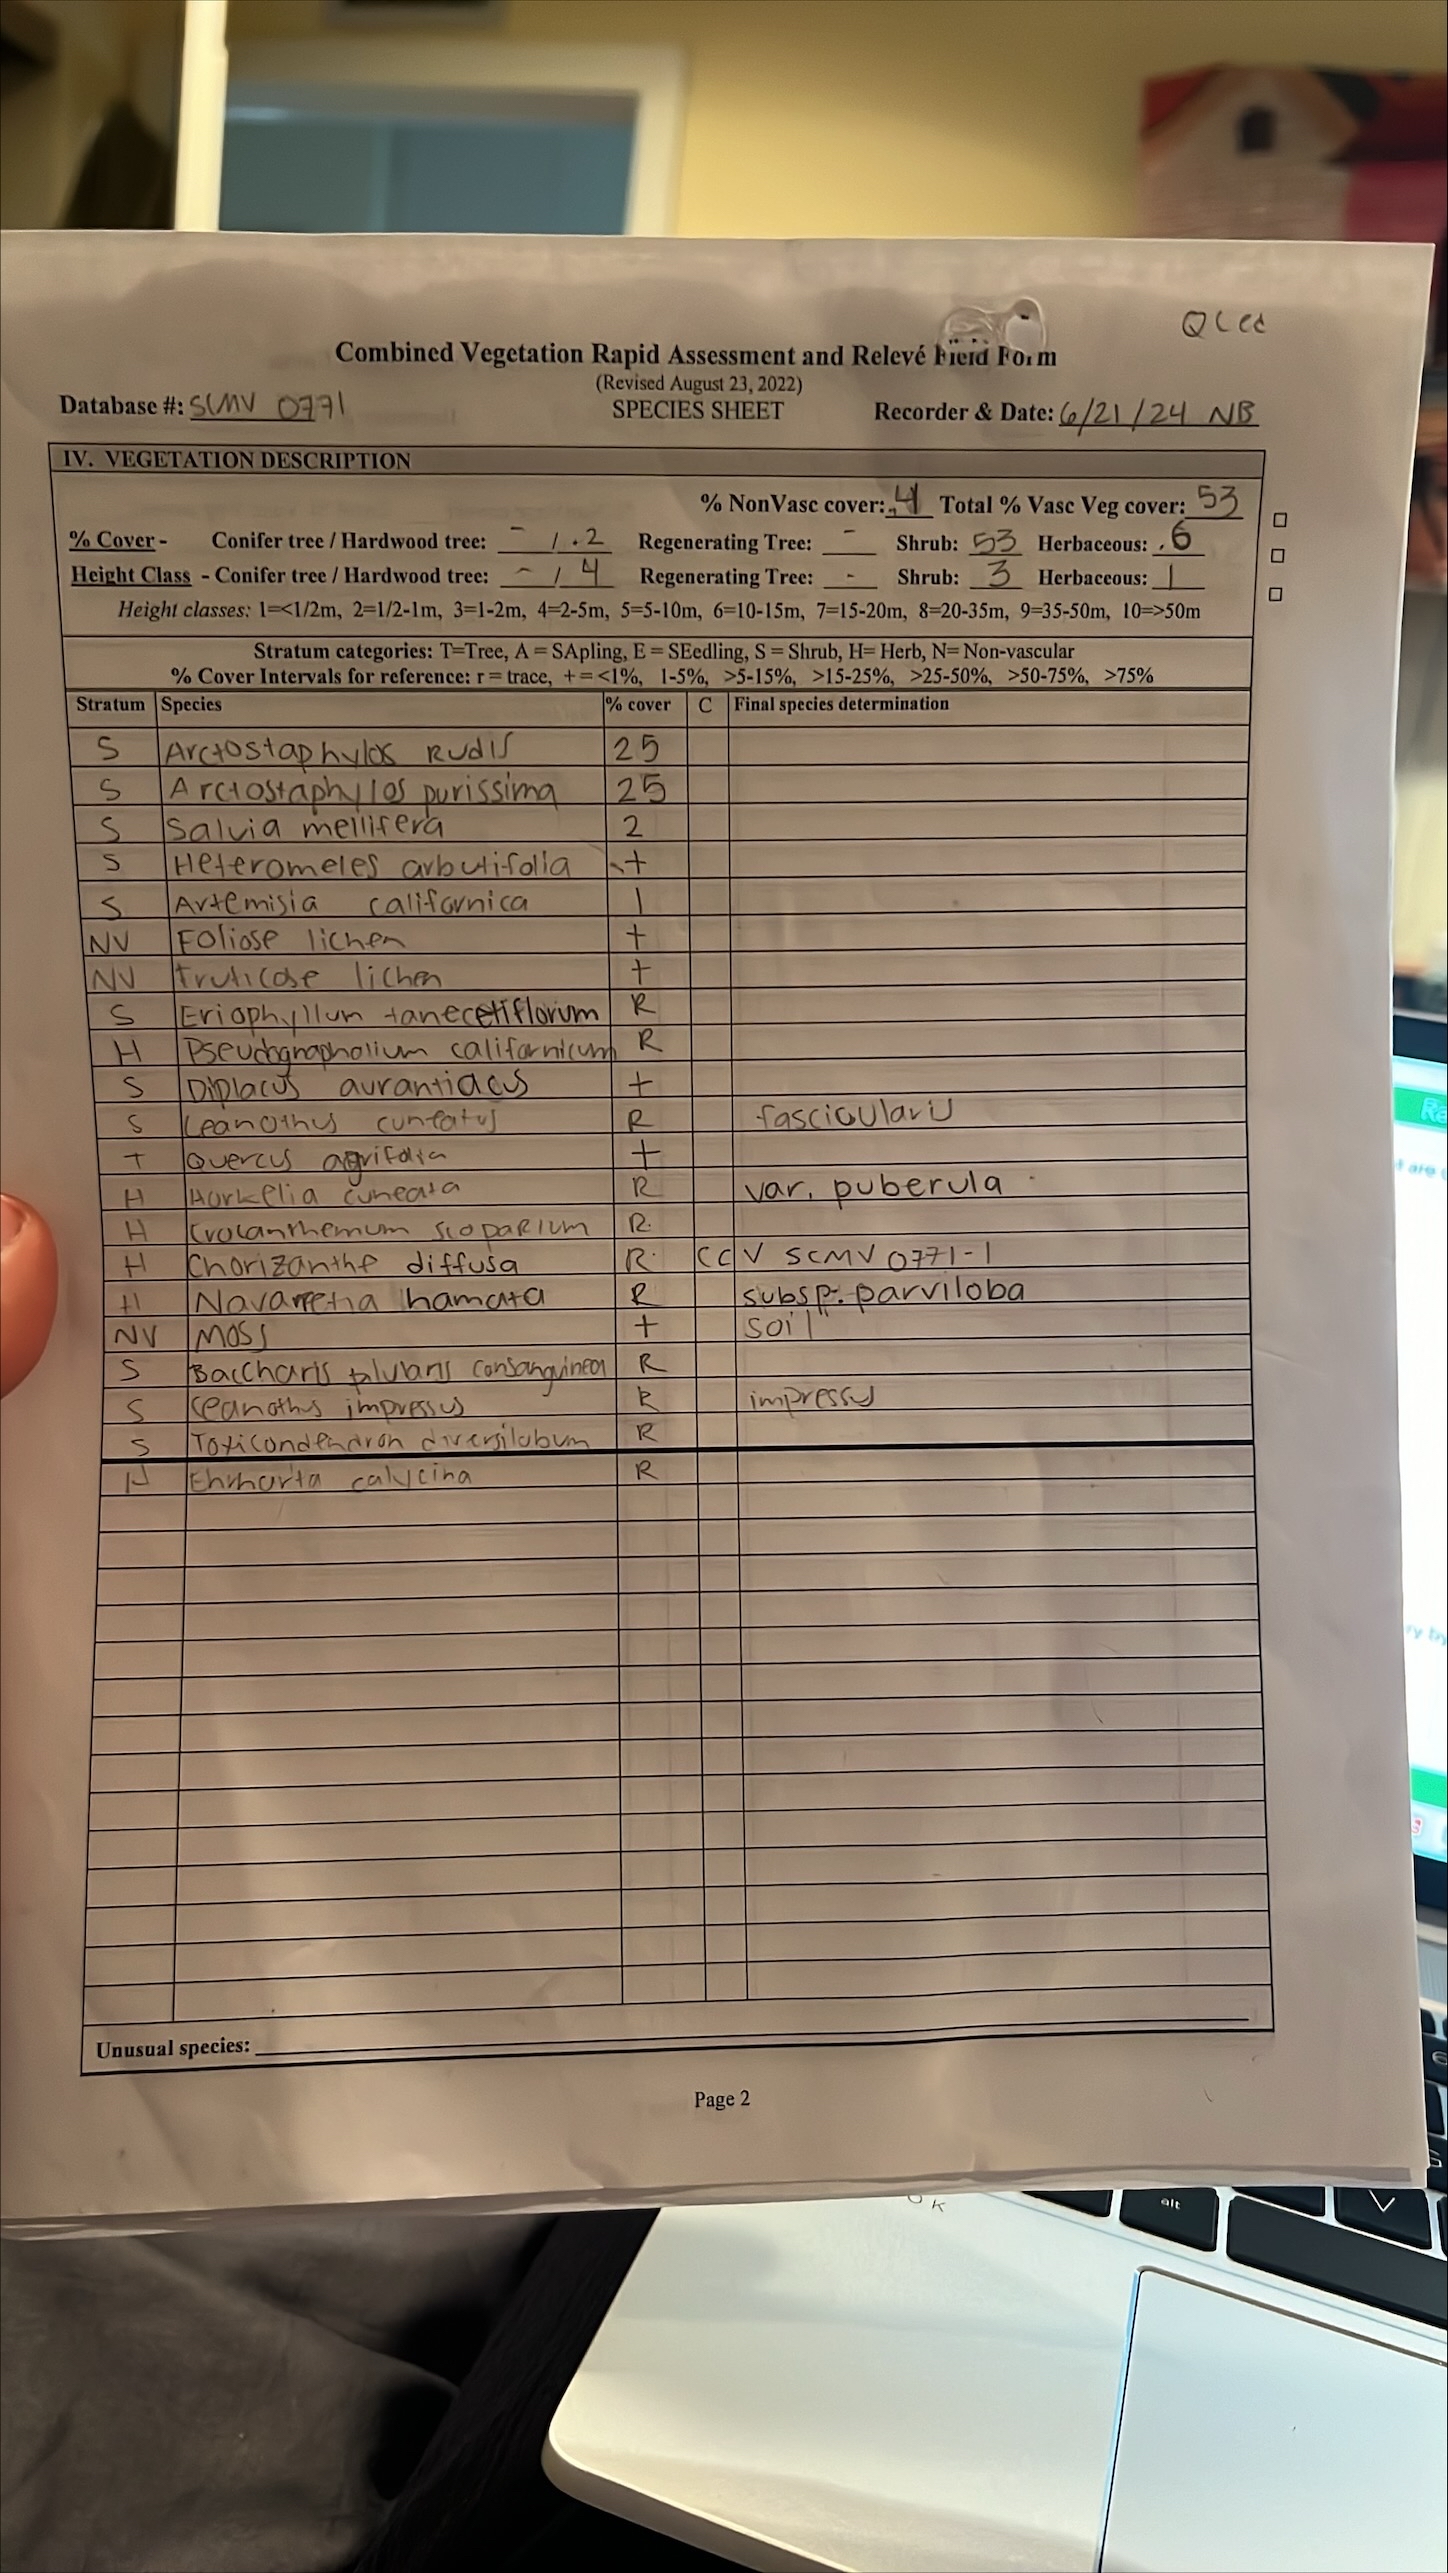 QCed
Combined Vegetation Rapid Assessment and Relevé Field Form
(Revised August 23, 2022)
Database #: SCMV 0771 SPECIES SHEET Recorder & Date: 6/21/24 NB
IV. VEGETATION DESCRIPTION
% NonVasc cover: .4 Total % Vasc Veg cover: 53
% Cover - Conifer tree / Hardwood tree: - / .2 Regenerating Tree: - Shrub: 53 Herbaceous: .6
Height Class - Conifer tree / Hardwood tree: - / 4 Regenerating Tree: - Shrub: 3 Herbaceous: 1
Height classes: 1=<1/2m, 2=1/2-1m, 3=1-2m, 4=2-5m, 5=5-10m, 6=10-15m, 7=15-20m, 8=20-35m, 9=35-50m, 10=>50m
Stratum categories: T=Tree, A = SApling, E = SEedling, S = Shrub, H= Herb, N= Non-vascular
% Cover Intervals for reference: r = trace, + = <1%, 1-5%, >5-15%, >15-25%, >25-50%, >50-75%, >75%
Stratum Species % cover C Final species determination
S Arctostaphylos Rudis 25
S Arctostaphylos purissima 25
S Salvia mellifera 2
S Heteromeles arbutifolia +
S Artemisia californica 1
NV Foliose lichen +
NV Fruticose lichen +
S Eriophyllum tanecetiflorum R
H Pseudognapholium californicum R
S Diplacus aurantiacus +
S Ceanothus cuneatus R fascicularis
T Quercus agrifolia +
H Horkelia cuneata R var. puberula
H Crocanthemum scoparium R
H Chorizanthe diffusa R CC V SCMV 0771-1
H Navarretia hamata R subsp. parviloba
NV Moss + soil
S Baccharis pilularis consanguinea R
S Ceanothus impressus R impressus
S Toxicondendron diversilobum R
H Ehrharta calycina R
Unusual species:
Page 2
alt